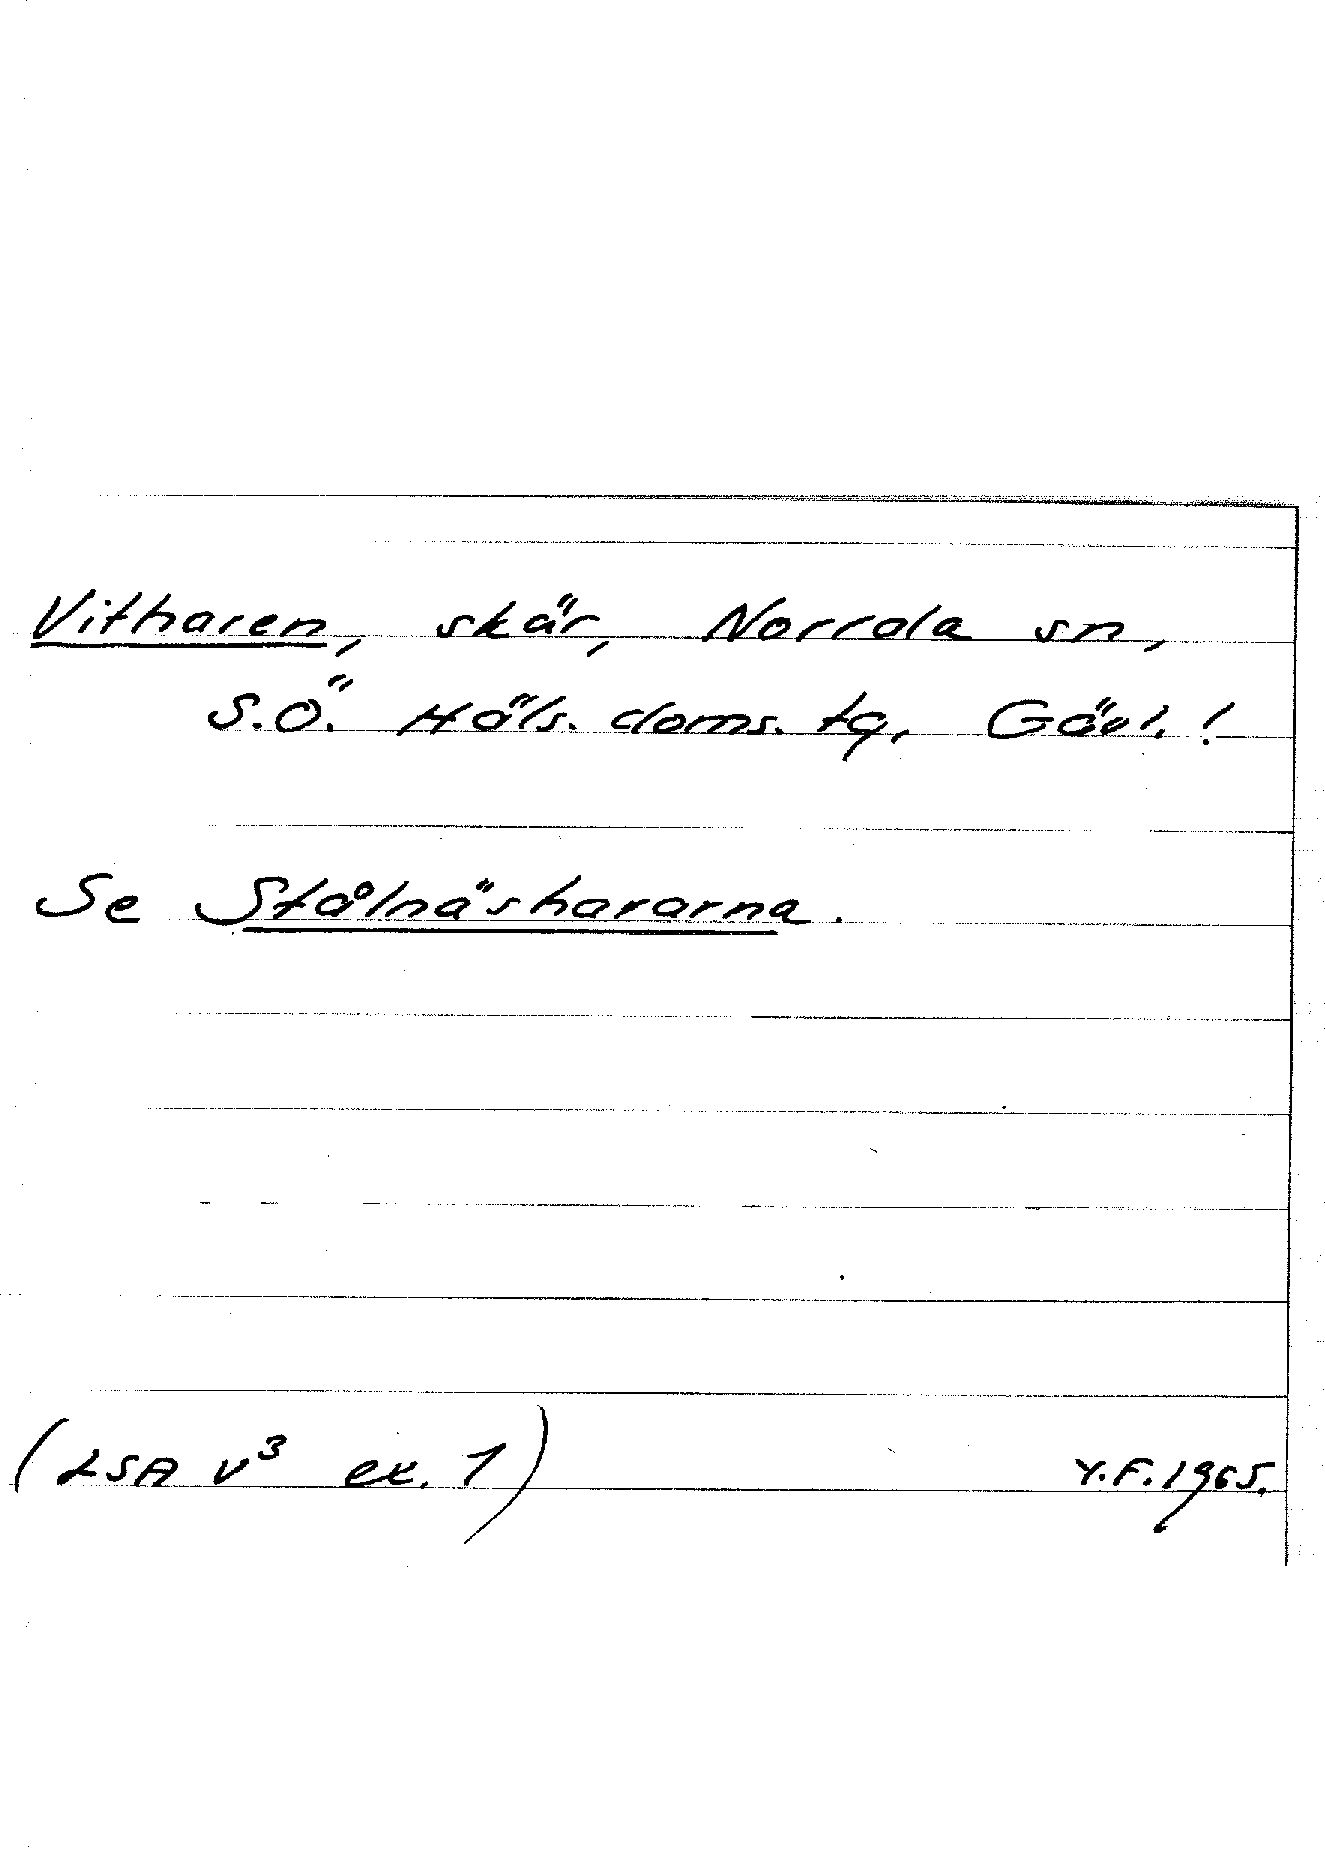 Vitharen, skär, Norrala sn,
S.Ö. Häls. doms. tg, Gävl. !
Se Stålnäshararna.
(LSA V³ ex. 1)
Y.F. 1965.